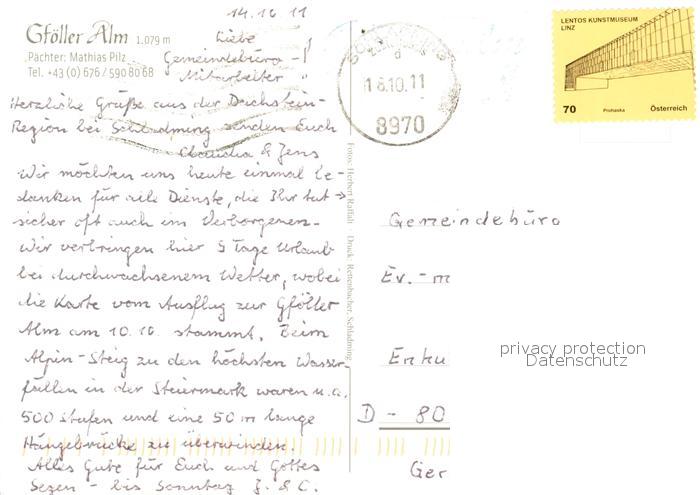 14.10.11
Gföller Alm 1.079 m
Pächter: Mathias Pilz
Tel. +43 (0) 676 / 590 80 68
Liebe
Gemeindebüro-
Mitarbeiter!
Herzliche Grüße aus der Dachstein-
Region bei Schladming senden Euch
Claudia & Jens
Wir möchten uns heute einmal be-
danken für alle Dienste, die Ihr tut →
sicher oft auch im Verborgenen.
Wir verbringen hier 5 Tage Urlaub
bei durchwachsenem Wetter, wobei
die Karte vom Ausflug zur Gföller
Alm am 10.10. stammt. Beim
Alpin-Steig zu den höchsten Wasser-
fällen in der Steiermark waren u.a.
500 Stufen und eine 50 m lange
Hängebrücke zu überwinden.
Alles Gute für Euch und Gottes
Segen - bis Sonntag J. & C.
Fotos: Herbert Raffalt Druck: Rettenbacher, Schladming
18.10.11
8970
LENTOS KUNSTMUSEUM
LINZ
70 Prohaska Österreich
Gemeindebüro
Ev.-m
Erku
D - 80
Ger
privacy protection
Datenschutz